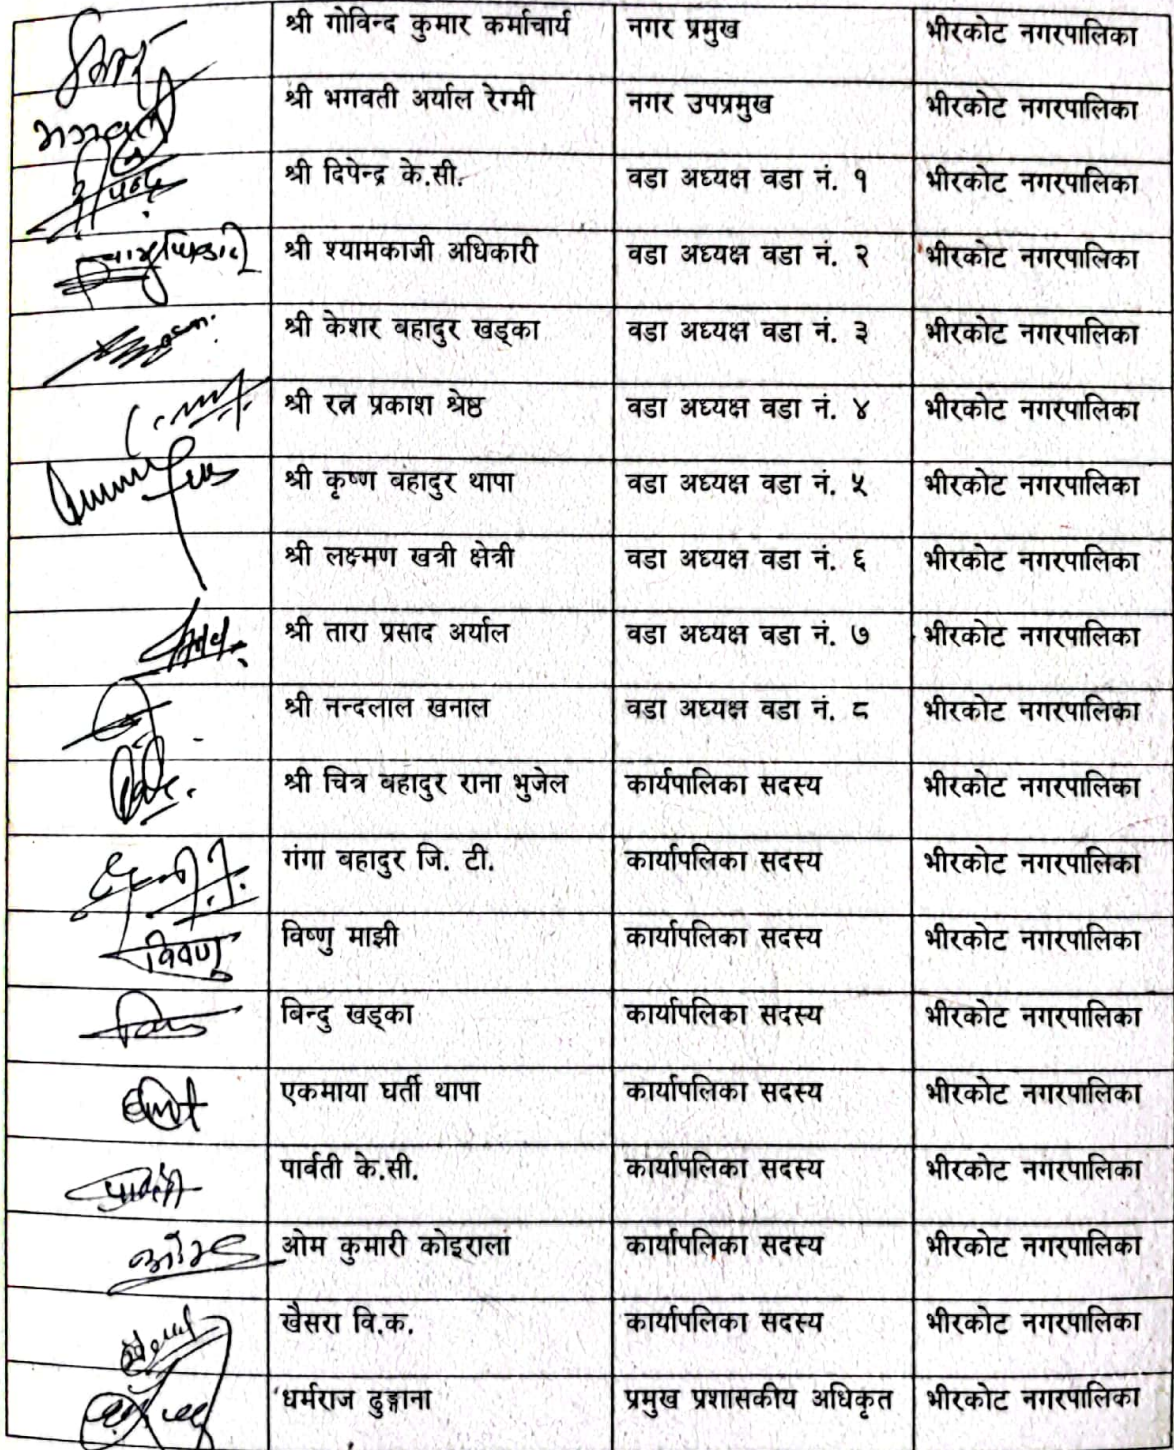 श्री गोविन्द कुमार कर्माचार्य नगर प्रमुख भीरकोट नगरपालिका
भगवती श्री भगवती अर्याल रेग्मी नगर उपप्रमुख भीरकोट नगरपालिका
श्री दिपेन्द्र के.सी. वडा अध्यक्ष वडा नं. १ भीरकोट नगरपालिका
श्री श्यामकाजी अधिकारी वडा अध्यक्ष वडा नं. २ भीरकोट नगरपालिका
श्री केशर बहादुर खड्का वडा अध्यक्ष वडा नं. ३ भीरकोट नगरपालिका
श्री रत्न प्रकाश श्रेष्ठ वडा अध्यक्ष वडा नं. ४ भीरकोट नगरपालिका
श्री कृष्ण बहादुर थापा वडा अध्यक्ष वडा नं. ५ भीरकोट नगरपालिका
श्री लक्ष्मण खत्री क्षेत्री वडा अध्यक्ष वडा नं. ६ भीरकोट नगरपालिका
श्री तारा प्रसाद अर्याल वडा अध्यक्ष वडा नं. ७ भीरकोट नगरपालिका
श्री नन्दलाल खनाल वडा अध्यक्ष वडा नं. ८ भीरकोट नगरपालिका
श्री चित्र बहादुर राना भुजेल कार्यपालिका सदस्य भीरकोट नगरपालिका
गंगा बहादुर जि. टी. कार्यापलिका सदस्य भीरकोट नगरपालिका
विष्णु विष्णु माझी कार्यापलिका सदस्य भीरकोट नगरपालिका
बिन्दु खड्का कार्यापलिका सदस्य भीरकोट नगरपालिका
एकमाया घर्ती थापा कार्यापलिका सदस्य भीरकोट नगरपालिका
पार्वती पार्वती के.सी. कार्यापलिका सदस्य भीरकोट नगरपालिका
ओम कुमारी कोइराला कार्यापलिका सदस्य भीरकोट नगरपालिका
खैसरा वि.क. कार्यापलिका सदस्य भीरकोट नगरपालिका
धर्मराज ढुङ्गाना प्रमुख प्रशासकीय अधिकृत भीरकोट नगरपालिका